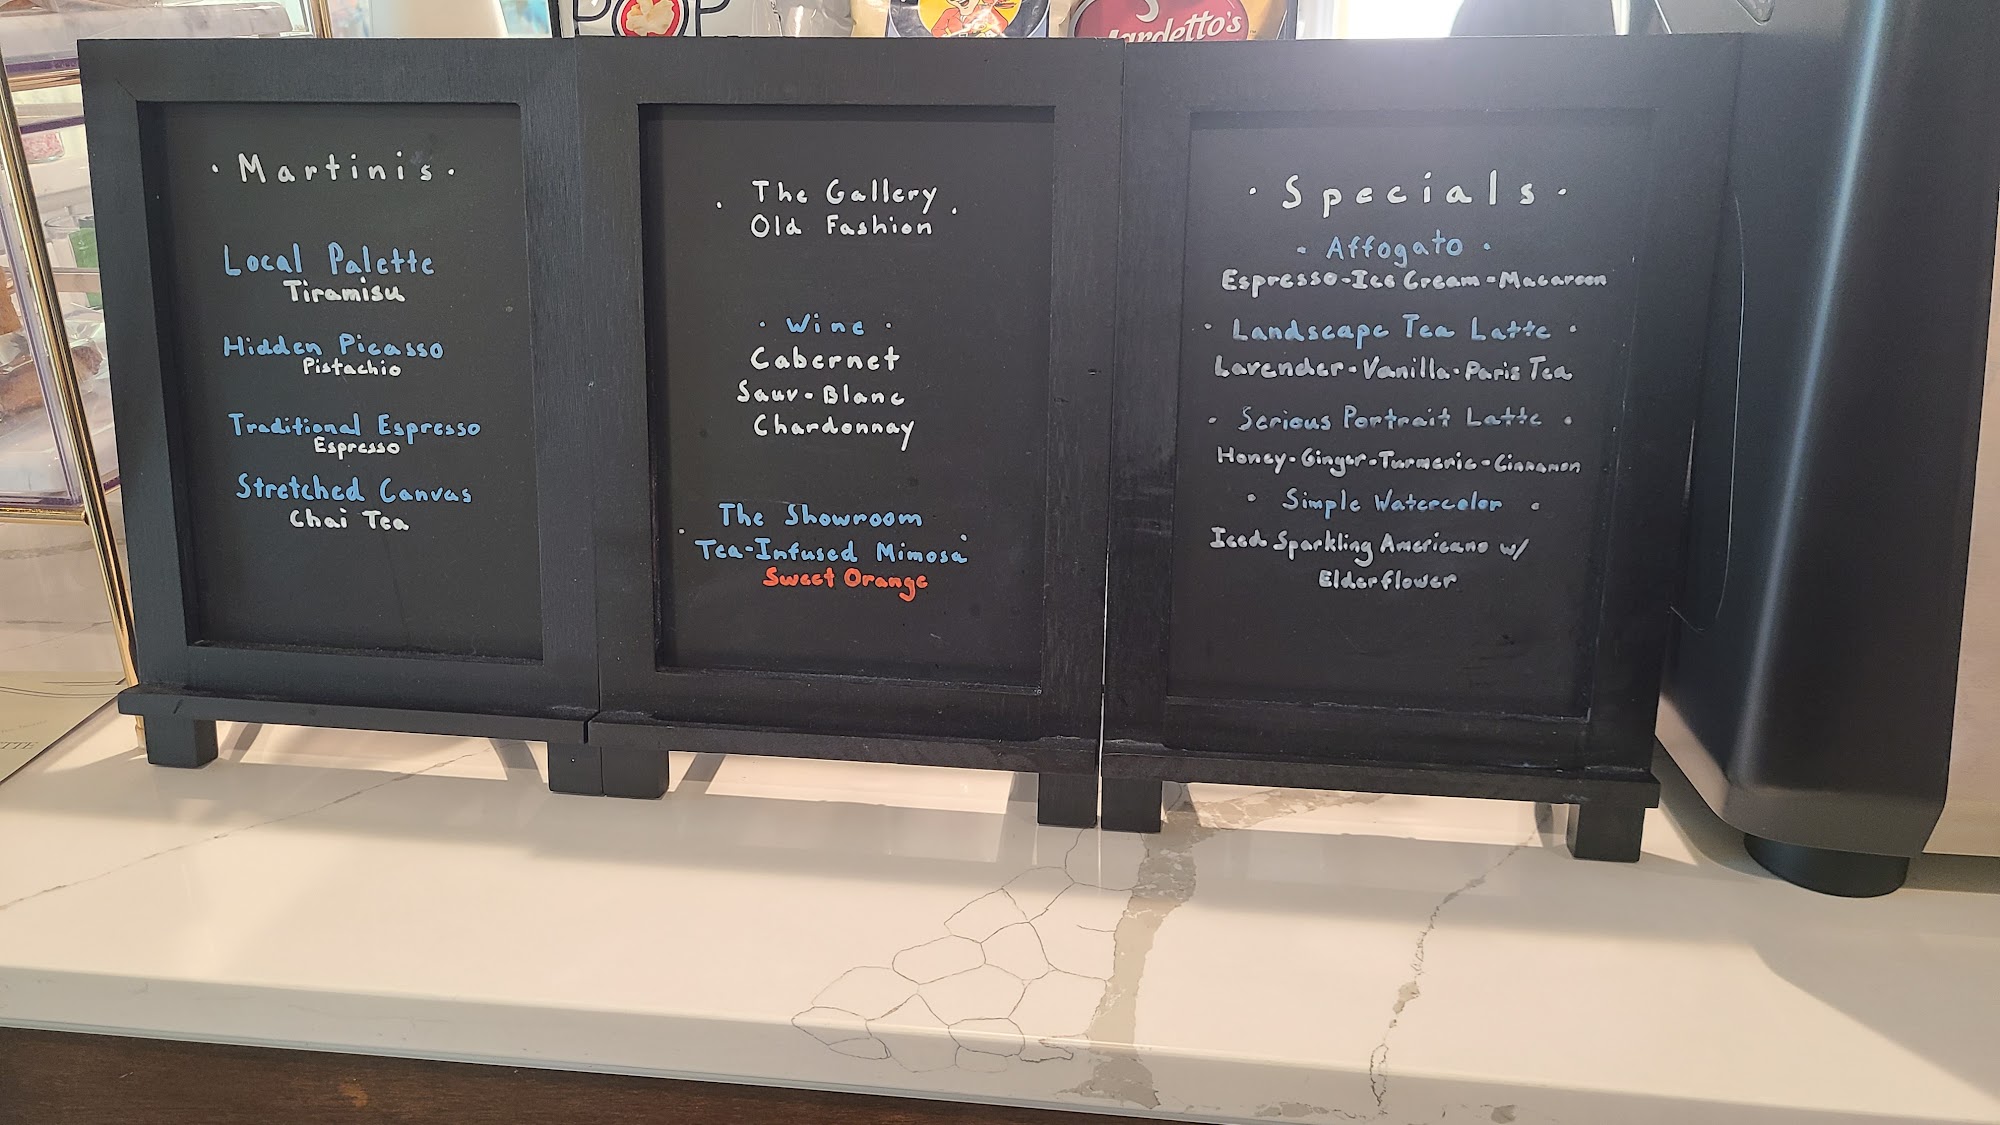 POP
ardetto's
· Martinis ·
Local Palette
Tiramisu
Hidden Picasso
Pistachio
Traditional Espresso
Espresso
Stretched Canvas
Chai Tea
· The Gallery ·
Old Fashion
· Wine ·
Cabernet
Sauv-Blanc
Chardonnay
The Showroom
· Tea-Infused Mimosa ·
Sweet Orange
· Specials ·
· Affogato ·
Espresso-Ice Cream-Macaroon
· Landscape Tea Latte ·
Lavender-Vanilla-Paris Tea
· Serious Portrait Latte ·
Honey-Ginger-Turmeric-Cinnamon
· Simple Watercolor ·
Iced Sparkling Americano w/
Elderflower
TTE